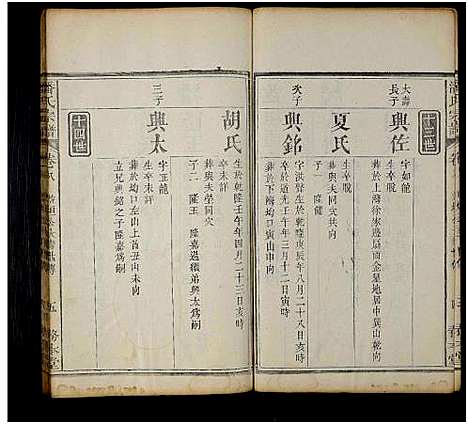 十三世
大壽長子
興佐
字如龍
生卒脫
葬與上灣徐家邊屋
夏氏
生卒脫
葬與夫同穴共向
子一 隆儲
次子
興銘
字洪聲生於乾隆庚辰年八月二十八日亥時
卒於道光壬午年三月十二日寅時
葬於下灣坳口寅山申向
胡氏
生於乾隆壬午年四月二十三日亥時
卒未詳
葬與夫榮同穴
子二 隆玉 隆嘉過繼弟興太爲嗣
十四世
三子
興太
字玉龍
生卒未詳
葬於坳口左山上首丑山未向
立兄興銘之子隆嘉爲嗣
潘氏宗譜
五